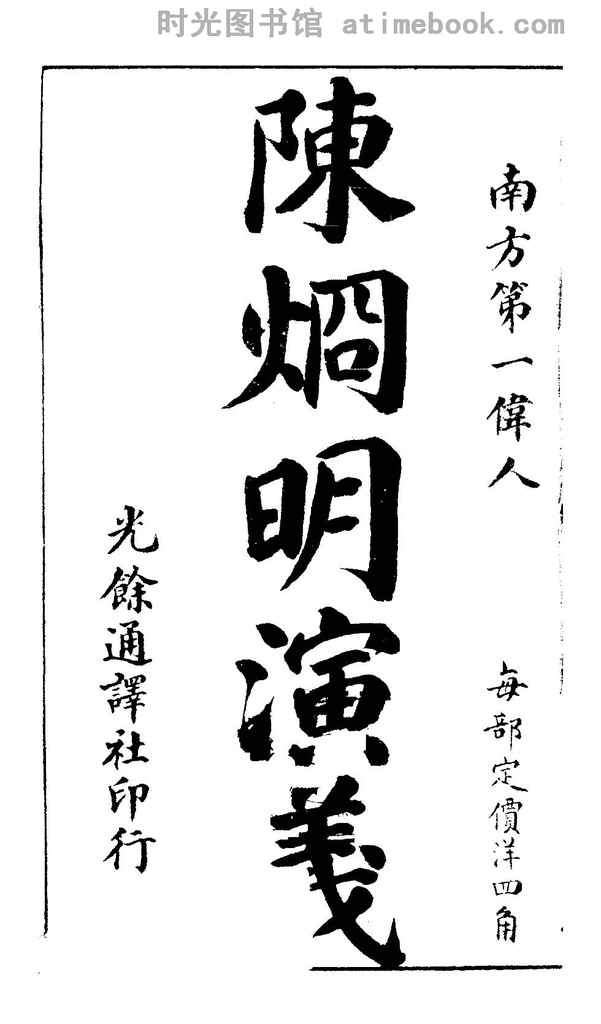 时光图书馆 atimebook.com
南方第一偉人
每部定價洋四角
陳烱明演義
光餘通譯社印行